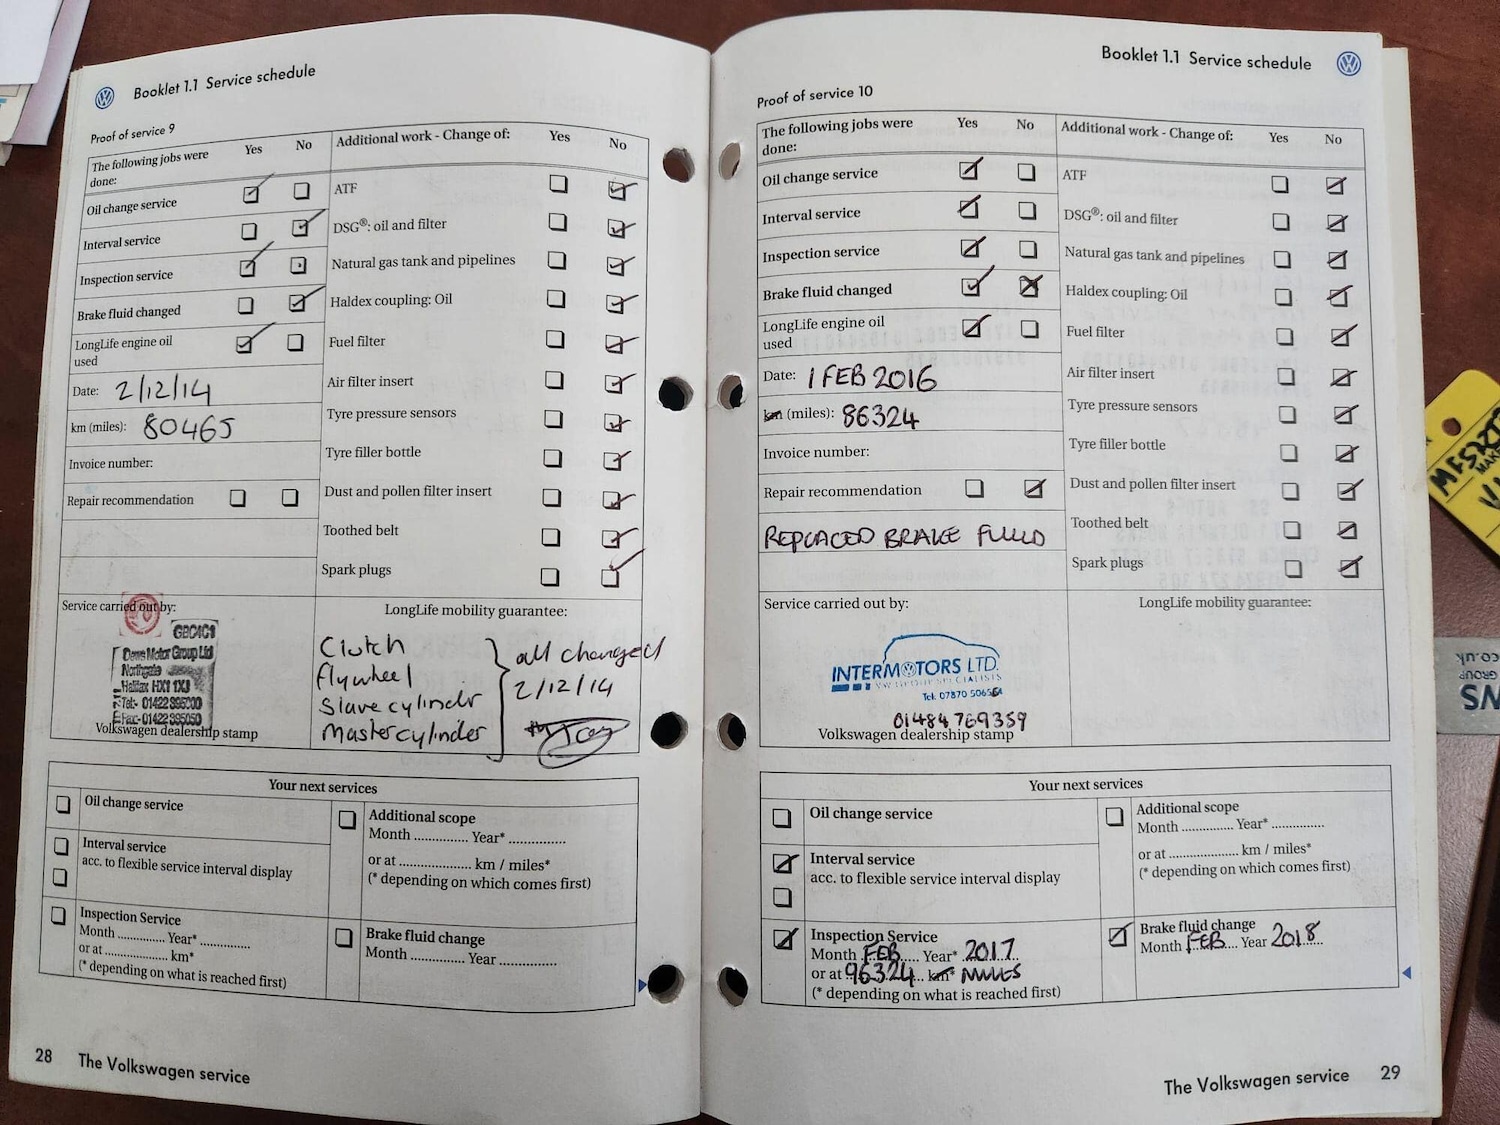 Booklet 1.1 Service schedule
Proof of service 9
The following jobs were done:
Yes No
Additional work - Change of:
Yes No
Oil change service
Interval service
Inspection service
Brake fluid changed
LongLife engine oil used
Date: 2/12/14
km (miles): 80465
Invoice number:
Repair recommendation
ATF
DSG®: oil and filter
Natural gas tank and pipelines
Haldex coupling: Oil
Fuel filter
Air filter insert
Tyre pressure sensors
Tyre filler bottle
Dust and pollen filter insert
Toothed belt
Spark plugs
Service carried out by:
GBC4C1
Motor Group Ltd
Northgate
Halifax HX1 1XJ
Volkswagen dealership stamp
LongLife mobility guarantee:
Clutch
flywheel
Slave cylinder
Mastercylinder
all changed
2/12/14
Your next services
Oil change service
Interval service
acc. to flexible service interval display
Inspection Service
Month .............. Year* ..............
or at ......................... km*
(* depending on what is reached first)
Additional scope
Month .............. Year* ..............
or at .................... km / miles*
(* depending on which comes first)
Brake fluid change
Month .............. Year ..............
28 The Volkswagen service
Booklet 1.1 Service schedule
Proof of service 10
The following jobs were done:
Yes No
Additional work - Change of:
Yes No
Oil change service
Interval service
Inspection service
Brake fluid changed
LongLife engine oil used
Date: 1 FEB 2016
km (miles): 86324
Invoice number:
Repair recommendation
REPLACED BRAKE FLUID
ATF
DSG®: oil and filter
Natural gas tank and pipelines
Haldex coupling: Oil
Fuel filter
Air filter insert
Tyre pressure sensors
Tyre filler bottle
Dust and pollen filter insert
Toothed belt
Spark plugs
Service carried out by:
INTERMOTORS LTD.
VW GROUP SPECIALISTS
01484 769359
Volkswagen dealership stamp
LongLife mobility guarantee:
Your next services
Oil change service
Interval service
acc. to flexible service interval display
Inspection Service
Month FEB Year* 2017
or at 96324 km* MILES
(* depending on what is reached first)
Additional scope
Month .............. Year* ..............
or at .................... km / miles*
(* depending on which comes first)
Brake fluid change
Month FEB Year 2018
The Volkswagen service 29